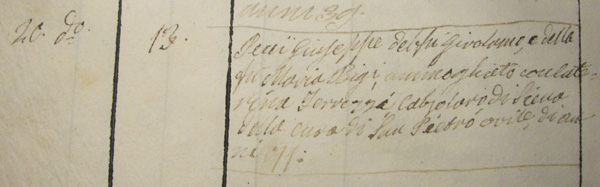 anni 39.
20. do. 13. Peni Giuseppe del fu Girolamo, e della
fu Maria Gigi, ammogliato con Cate-
rina Terrozzi Calzolaro di Siena
dalla cura di San Pietro ovile, di an-
ni